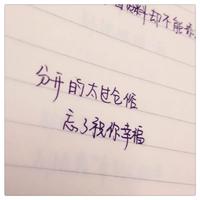 料却不能
分开的太过仓促
忘了祝你幸福